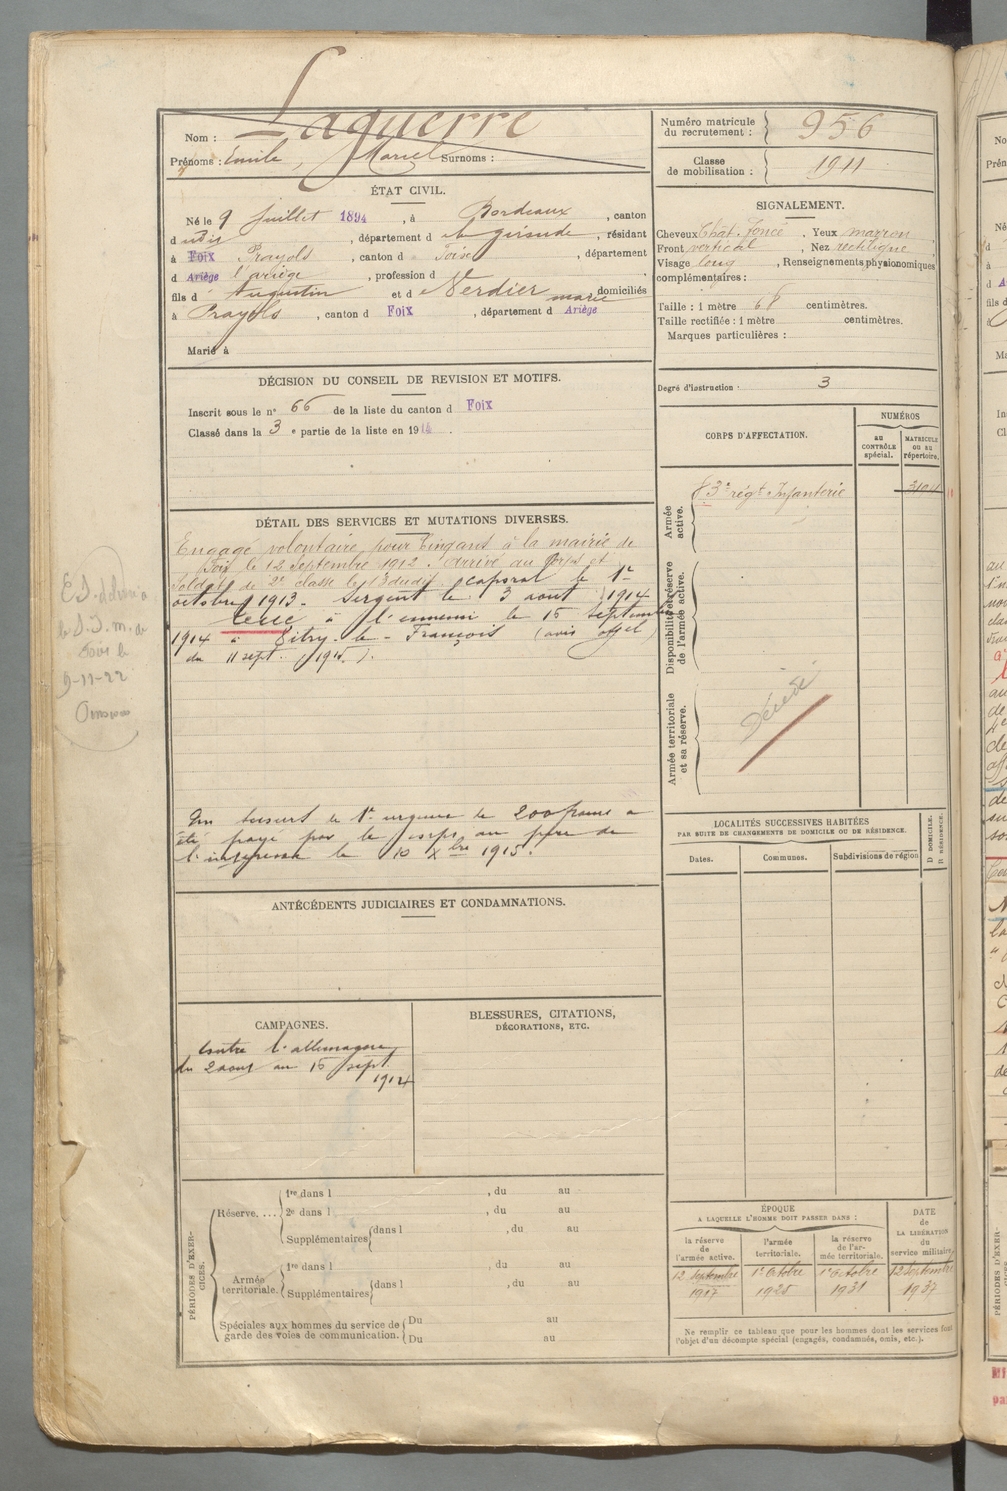 Nom : Laguerre
Prénoms : Emile, Marcel Surnoms :
ÉTAT CIVIL.
Né le 9 Juillet 1894, à Bordeaux, canton
d udit, département d e la Gironde, résidant
à Foix Prayols, canton d Foix, département
d Ariège l'ariège, profession d
fils d' Augustin et d e Verdier marie domiciliés
à Prayols, canton d Foix, département d Ariège
Marié à
DÉCISION DU CONSEIL DE REVISION ET MOTIFS.
Inscrit sous le n° 66 de la liste du canton d Foix
Classé dans la 3 e partie de la liste en 1914.
DÉTAIL DES SERVICES ET MUTATIONS DIVERSES.
Engagé volontaire pour cinq ans à la mairie de
Foix le 12 Septembre 1912. Arrivé au Corps et
Soldat de 2e classe le 13 dudit. caporal le 1er
octobre 1913. Sergent le 3 aout 1914
tué à l'ennemi le 15 septembre
1914 à Vitry-le-François (avis offel
du 11 sept. 1915.).
Un secours de 1re urgence de 200 francs a
été payé par le corps au père de
l'intéressé le 10 Xbre 1915.
ANTÉCÉDENTS JUDICIAIRES ET CONDAMNATIONS.
CAMPAGNES.
Contre l'allemagne
du 2 aout au 15 sept.
1914
BLESSURES, CITATIONS,
DÉCORATIONS, ETC.
PÉRIODES D'EXERCICES.
Réserve....
1re dans l , du au
2e dans l , du au
Supplémentaires dans l , du au
Armée territoriale.
1re dans l , du au
Supplémentaires dans l , du au
Spéciales aux hommes du service de
garde des voies de communication.
Du au
Du au
Numéro matricule
du recrutement : 956
Classe
de mobilisation : 1911
SIGNALEMENT.
Cheveux Chât. foncé, Yeux marron,
Front vertical, Nez rectiligne
Visage long, Renseignements physionomiques
complémentaires :
Taille : 1 mètre 68 centimètres.
Taille rectifiée : 1 mètre centimètres.
Marques particulières :
Degré d'instruction : 3
CORPS D'AFFECTATION.
NUMÉROS
au
CONTRÔLE
spécial.
MATRICULE
OU AU
répertoire.
Armée
active.
83e régt Infanterie
Disponibilité et réserve
de l'armée active.
Armée territoriale
et sa réserve.
Décédé
LOCALITÉS SUCCESSIVES HABITÉES
PAR SUITE DE CHANGEMENTS DE DOMICILE OU DE RÉSIDENCE.
Dates.
Communes.
Subdivisions de région
D DOMICILE.
R RÉSIDENCE.
ÉPOQUE
A LAQUELLE L'HOMME DOIT PASSER DANS :
la réserve
de
l'armée active.
l'armée
territoriale.
la réserve
de l'ar-
mée territoriale.
DATE
de
LA LIBÉRATION
du
service militaire.
12 Septembre
1917
1er Octobre
1925
1er Octobre
1931
12 Septembre
1937
Ne remplir ce tableau que pour les hommes dont les services font
l'objet d'un décompte spécial (engagés, condamnés, omis, etc.).
9-11-22